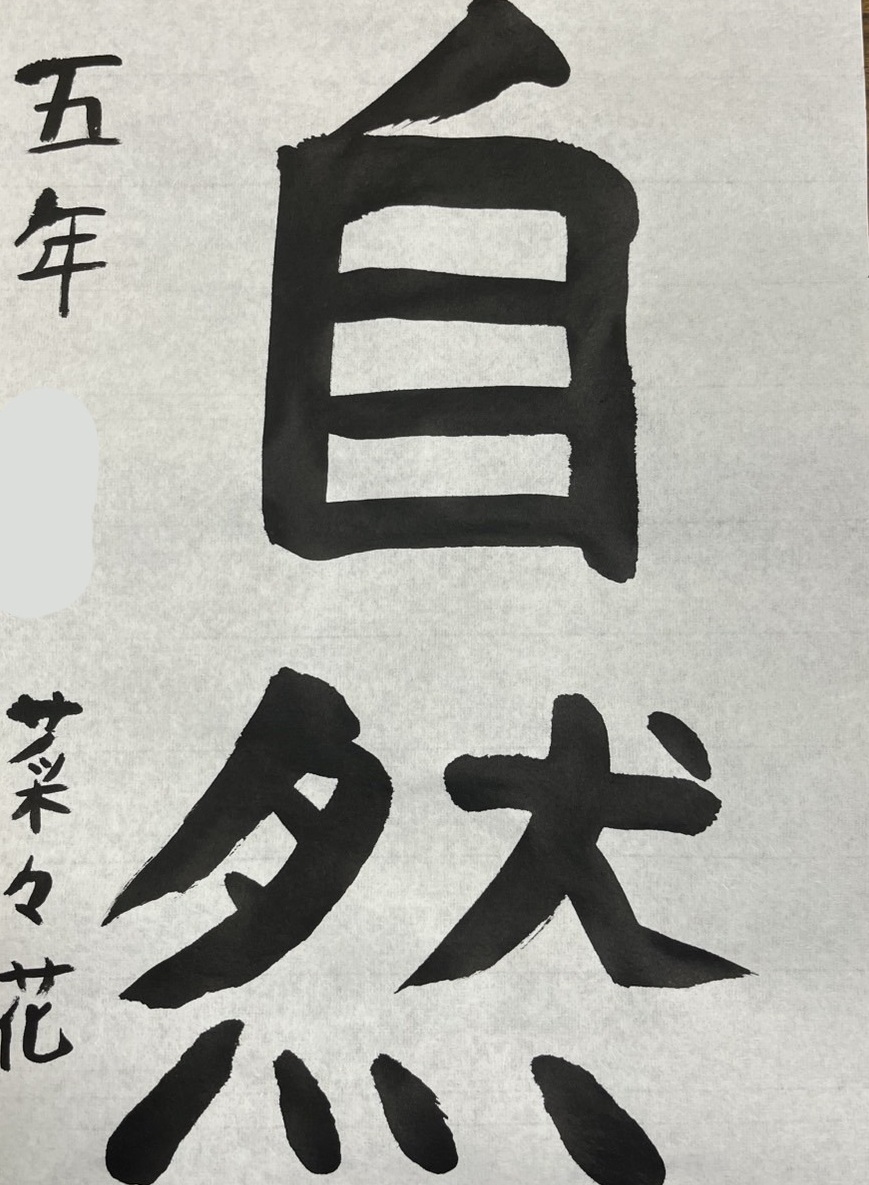 自然
五年 菜々花